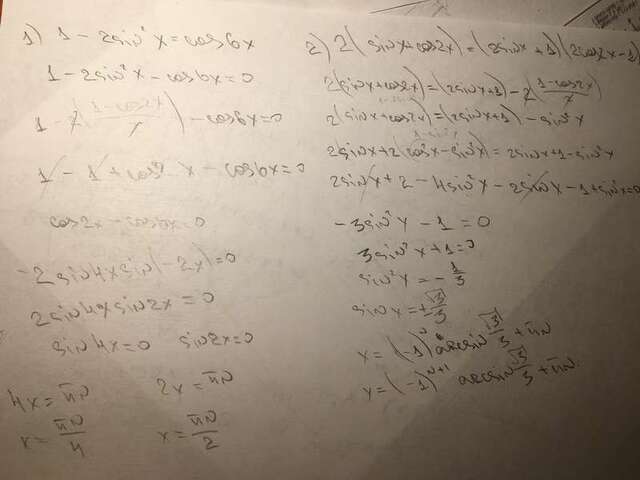 1) 1 - 2sin²x = cos6x
1 - 2sin²x - cos6x = 0
1 - 2(1-cos2x/2) - cos6x = 0
1 - 1 + cos2x - cos6x = 0
cos2x - cos6x = 0
-2sin4x sin(-2x) = 0
2sin4x sin2x = 0
sin4x = 0 sin2x = 0
4x = πn 2x = πn
x = πn/4 x = πn/2
2) 2(sinx + cos2x) = (2sinx + 1)(2cos2x - 1)
2(sinx + cos2x) = (2sinx + 1) - 2(1-cos2x/2)
2(sinx + cos2x) = (2sinx + 1) - sin²x
2sinx + 2(cos²x - sin²x) = 2sinx + 1 - sin²x
2sinx + 2 - 4sin²x - 2sinx - 1 + sin²x = 0
-3sin²x - 1 = 0
3sin²x + 1 = 0
sin²x = -1/3
sinx = ±√3/3
x = (-1)ⁿ arcsin √3/3 + πn
x = (-1)ⁿ⁺¹ arcsin √3/3 + πn